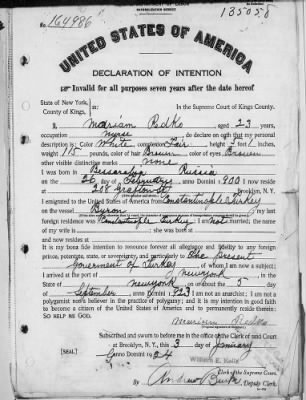 No. 164986
135058
UNITED STATES OF AMERICA
DECLARATION OF INTENTION
Invalid for all purposes seven years after the date hereof
State of New York,
County of Kings, ss:
In the Supreme Court of Kings County.
I, Mariam Redko aged 23 years,
occupation nurse do declare on oath that my personal
description is: Color White complexion Fair height feet inches,
weight 115 pounds, color of hair Brown color of eyes Brown
other visible distinctive marks none
I was born in Bessarabia Russia
on the 26 day of February anno Domini 1900 I now reside
at 208 Grafton St Brooklyn, N. Y.
I emigrated to the United States of America from Constantinople Turkey
on the vessel Byron my last
foreign residence was Constantinople Turkey I am not married; the name
of my wife is she was born at
and now resides at
It is my bona fide intention to renounce forever all allegiance and fidelity to any foreign
prince, potentate, state, or sovereignty, and particularly to The present
Government of Turkey of whom I am now a subject; I
arrived at the port of New York in the
State of New York on or about the 5 day
of September anno Domini 1923 I am not an anarchist; I am not a
polygamist nor a believer in the practice of polygamy; and it is my intention in good faith
to become a citizen of the United States of America and to permanently reside therein:
SO HELP ME GOD.
Subscribed and sworn to before me in the office of the Clerk of said Court
at Brooklyn, N. Y., this 3 day of January
anno Domini 1924
[SEAL]
William E. Kelly
Clerk of the Supreme Court.
By Andrew Deputy Clerk.